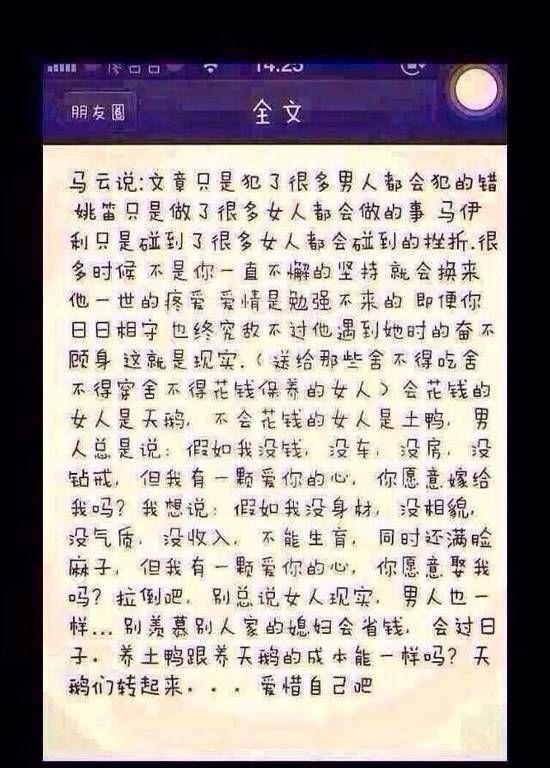 14:25
朋友圈
全文
马云说:文章只是犯了很多男人都会犯的错
姚笛只是做了很多女人都会做的事 马伊
利只是碰到了很多女人都会碰到的挫折.很
多时候 不是你一直不懈的坚持 就会换来
他一世的疼爱 爱情是勉强不来的 即便你
日日相守 也终究敌不过他遇到她时的奋不
顾身 这就是现实.(送给那些舍不得吃舍
不得穿舍不得花钱保养的女人)会花钱的
女人是天鹅，不会花钱的女人是土鸭，男
人总是说：假如我没钱，没车，没房，没
钻戒，但我有一颗爱你的心，你愿意嫁给
我吗？我想说：假如我没身材，没相貌，
没气质，没收入，不能生育，同时还满脸
麻子，但我有一颗爱你的心，你愿意娶我
吗？拉倒吧，别总说女人现实，男人也一
样... 别羡慕别人家的媳妇会省钱，会过日
子．养土鸭跟养天鹅的成本能一样吗？天
鹅们转起来．．．爱惜自己吧